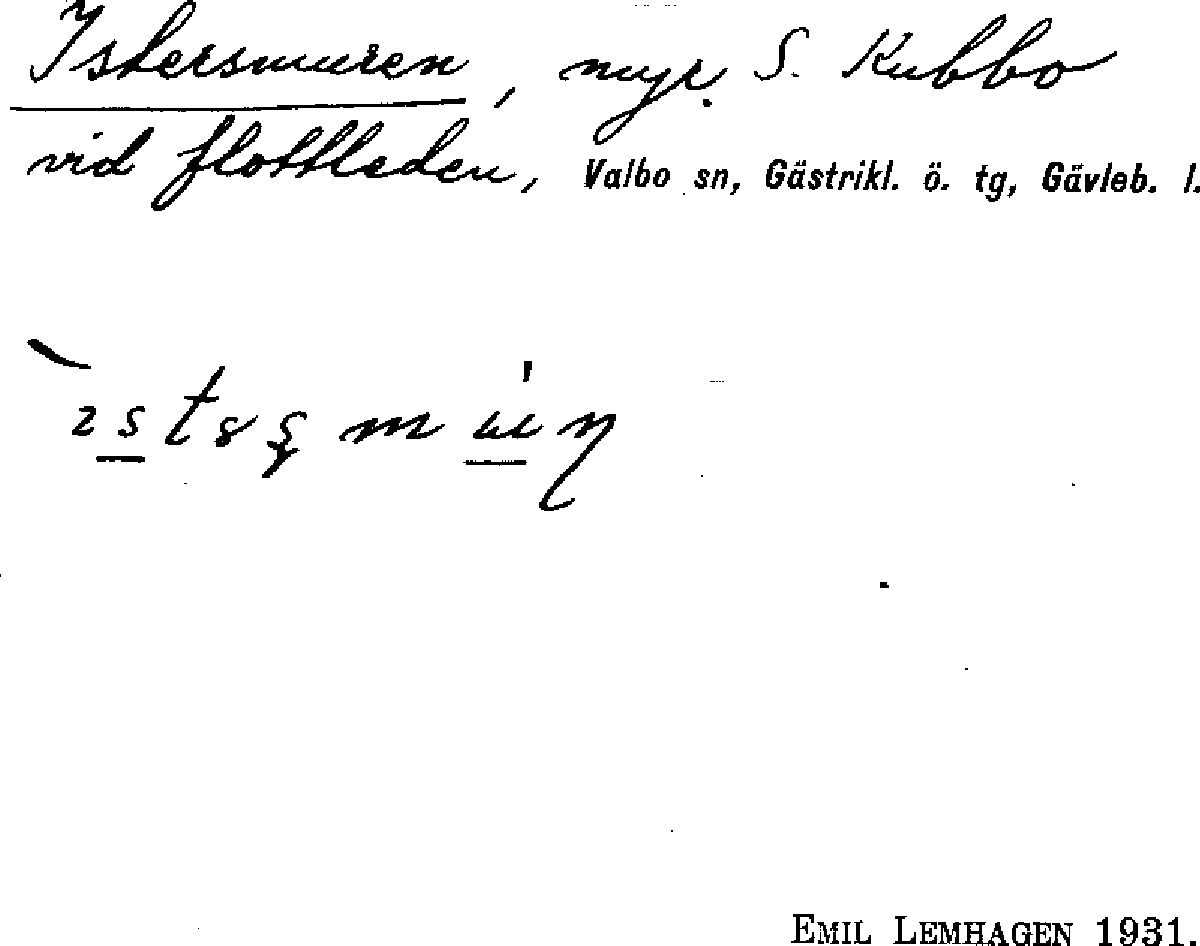 Istersmuren, myr. S. Kubbo
vid flottleden, Valbo sn, Gästrikl. ö. tg, Gävleb. l.
EMIL LEMHAGEN 1931.